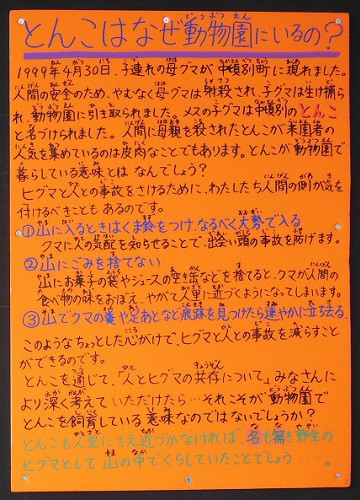 とんこはなぜ動物園にいるの?
1999年4月30日、子連れの母グマが中頓別町に現れました。
人間の安全のため、やむなく母グマは射殺され、子グマは生け捕ら
れ、動物園に引き取られました。メスの子グマは中頓別のとんこ
と名づけられました。人間に母親を殺されたとんこが来園者の
人気を集めているのは皮肉なことでもあります。とんこが動物園で
暮らしている意味とは なんでしょう?
ヒグマと人との事故をさけるために、わたしたち人間の側が気を
付けるべきことも あるのです。
①山に入るときはくま鈴をつけ、なるべく大勢で入る
クマに人の気配を知らせることで、出会い頭の事故を防げます。
②山にごみを捨てない
山にお菓子の袋やジュースの空き缶などを捨てると、クマが人間の
食べ物の味をおぼえ、やがて人里に近づくようになってしまいます。
③山でクマの糞や足あとなど痕跡を見つけたら速やかに立ち去る
このようなちょっとした心がけで、ヒグマと人との事故を減らすこと
ができるのです。
とんこを通じて、「人とヒグマの共存について」みなさんに
より深く考えていただけたら…それこそが動物園で
とんこを飼育している意味なのではないでしょうか?
とんこも人里にさえ近づかなければ、名も無き野生の
ヒグマとして 山の中でくらしていたことでしょう…。